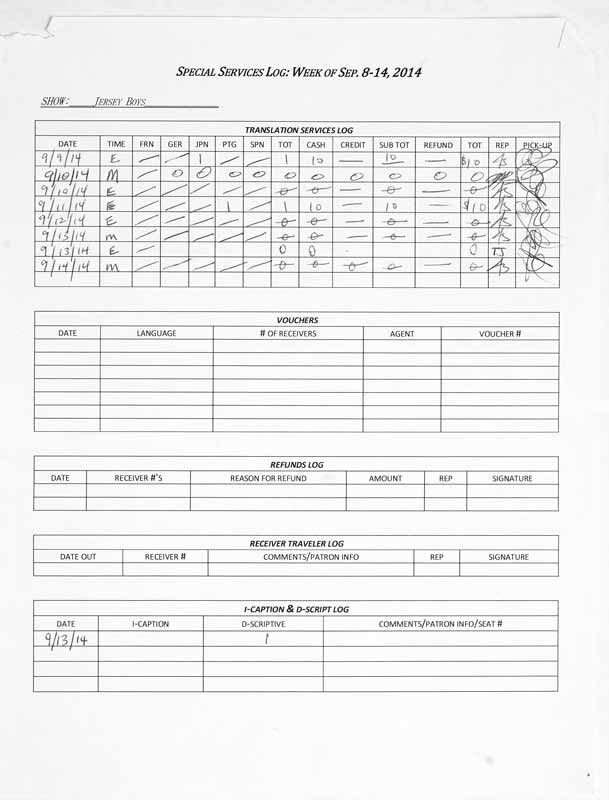 SPECIAL SERVICES LOG: WEEK OF SEP. 8-14, 2014
SHOW: JERSEY BOYS
TRANSLATION SERVICES LOG
DATE TIME FRN GER JPN PTG SPN TOT CASH CREDIT SUB TOT REFUND TOT REP PICK-UP
9/9/14 E — — 1 — — 1 10 — 10 — $10
9/10/14 M — 0 0 0 0 0 0 0 0 0 0
9/10/14 E — — — — — 0 0 — 0 — 0
9/11/14 E — — — 1 — 1 10 — 10 — $10
9/12/14 E — — — — — 0 0 — 0 — 0
9/13/14 M — — — — — 0 0 — 0 — 0
9/13/14 E — 0 0 0 TJ
9/14/14 M — — — — — 0 0 0 0 — 0
VOUCHERS
DATE LANGUAGE # OF RECEIVERS AGENT VOUCHER #
REFUNDS LOG
DATE RECEIVER #'S REASON FOR REFUND AMOUNT REP SIGNATURE
RECEIVER TRAVELER LOG
DATE OUT RECEIVER # COMMENTS/PATRON INFO REP SIGNATURE
I-CAPTION & D-SCRIPT LOG
DATE I-CAPTION D-SCRIPTIVE COMMENTS/PATRON INFO/SEAT #
9/13/14 1